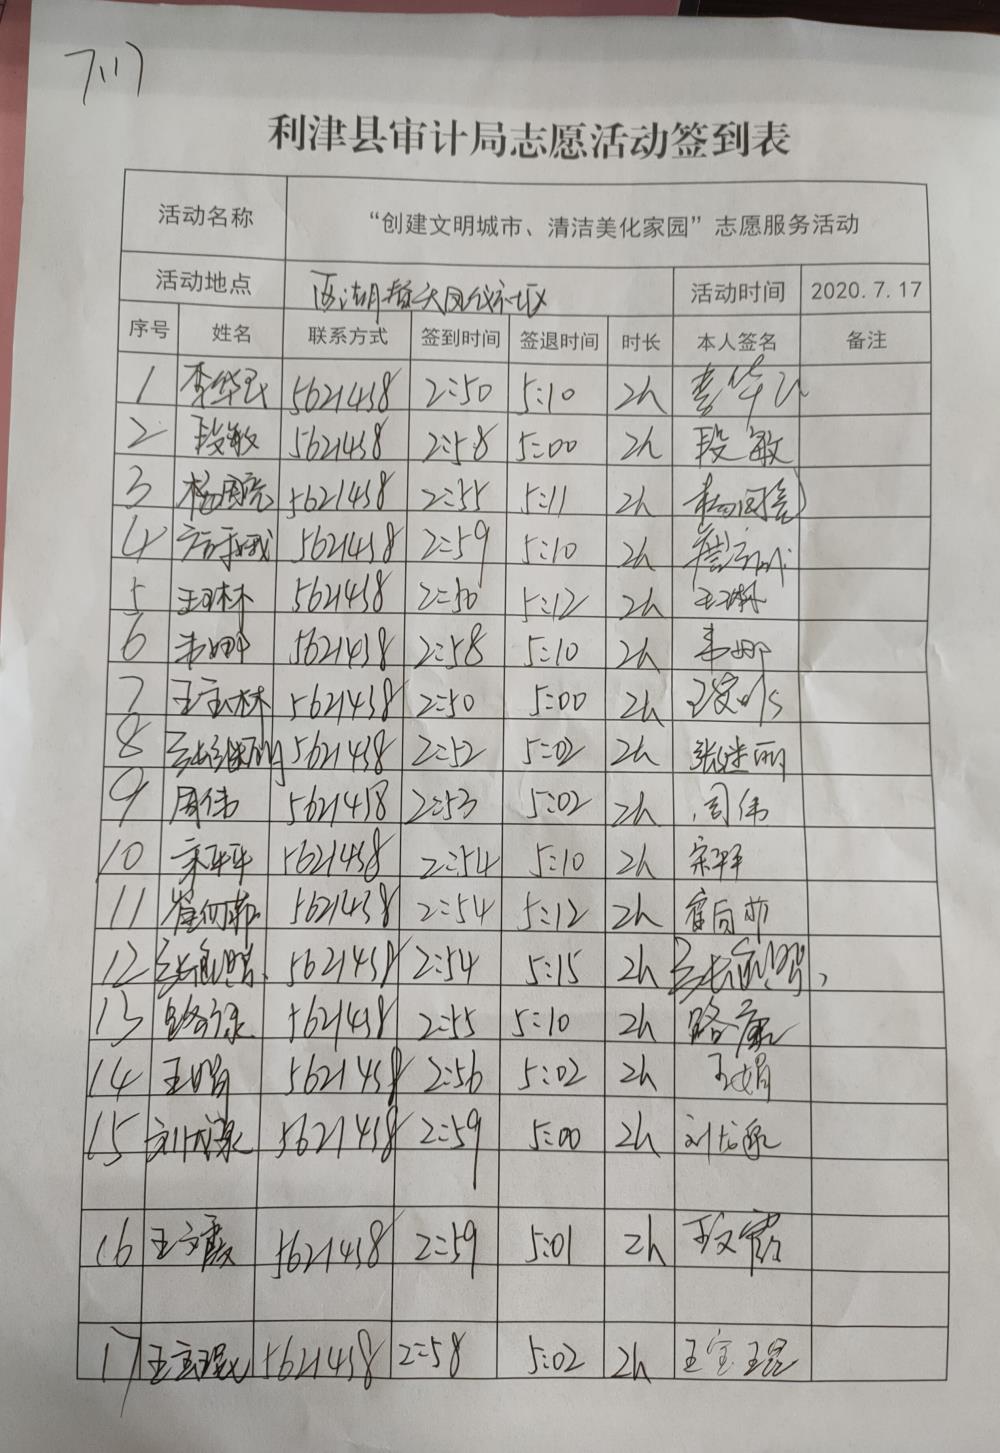 7.17
利津县审计局志愿活动签到表
活动名称 “创建文明城市、清洁美化家园”志愿服务活动
活动地点 活动时间 2020.7.17
序号 姓名 联系方式 签到时间 签退时间 时长 本人签名 备注
1 李华民 5621438 2:50 5:10 2h 李华民
2 段敏 5621438 2:58 5:00 2h 段敏
3 5621438 2:55 5:11 2h
4 5621438 2:59 5:10 2h
5 王琳 5621438 2:50 5:12 2h 王琳
6 韦娜 5621438 2:58 5:10 2h 韦娜
7 5621438 2:50 5:00 2h
8 张继丽 5621438 2:52 5:02 2h 张继丽
9 周伟 5621438 2:53 5:02 2h 周伟
10 宋平平 5621438 2:54 5:10 2h 宋平平
11 5621438 2:54 5:12 2h
12 5621438 2:54 5:15 2h
13 路康 5621438 2:55 5:10 2h 路康
14 王娟 5621438 2:56 5:02 2h 王娟
15 5621438 2:59 5:00 2h
16 王文霞 5621438 2:59 5:01 2h 王文霞
17 王宝琨 5621438 2:58 5:02 2h 王宝琨